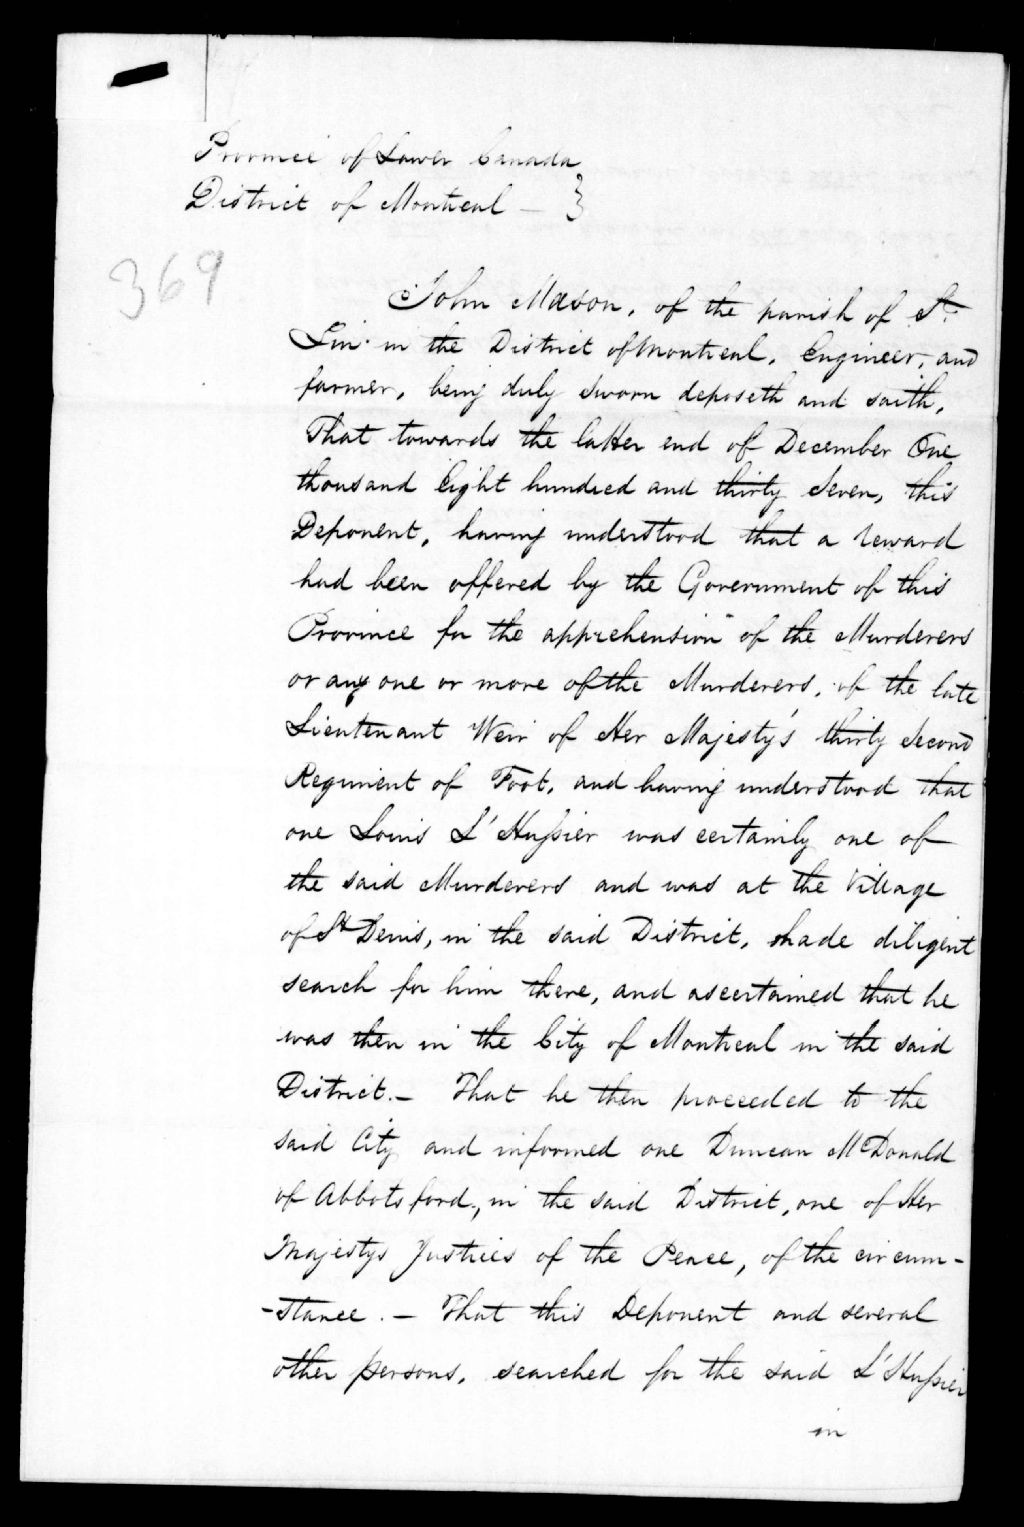 Province of Lower Canada
District of Montreal — }
369
John Mason, of the parish of St.
Lin. in the District of Montreal, Engineer, and
farmer, being duly sworn deposeth and saith,
That towards the latter end of December One
thousand Eight hundred and thirty Seven, this
Deponent, having understood that a reward
had been offered by the Government of this
Province for the apprehension of the Murderers
or any one or more of the Murderers, of the late
Lieutenant Weir of Her Majesty's thirty Second
Regiment of Foot, and having understood that
one Louis L'Hussier was certainly one of
the said Murderers and was at the Village
of St Denis, in the said District, made diligent
search for him there, and ascertained that he
was then in the City of Montreal in the said
District. — That he then proceeded to the
said City and informed one Duncan McDonald
of Abbotsford, in the said District, one of Her
Majestys Justices of the Peace, of the circum-
-stance. — That this Deponent and several
other persons, searched for the said L'Hussier
in